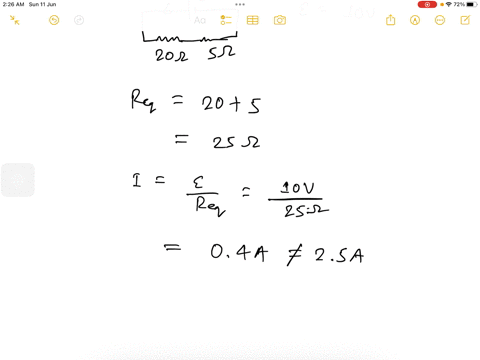 2:26 AM Sun 11 Jun
72%
Aa
20Ω 5Ω
Req = 20 + 5
= 25 Ω
I = ε/Req = 10V/25Ω
= 0.4A ≠ 2.5A